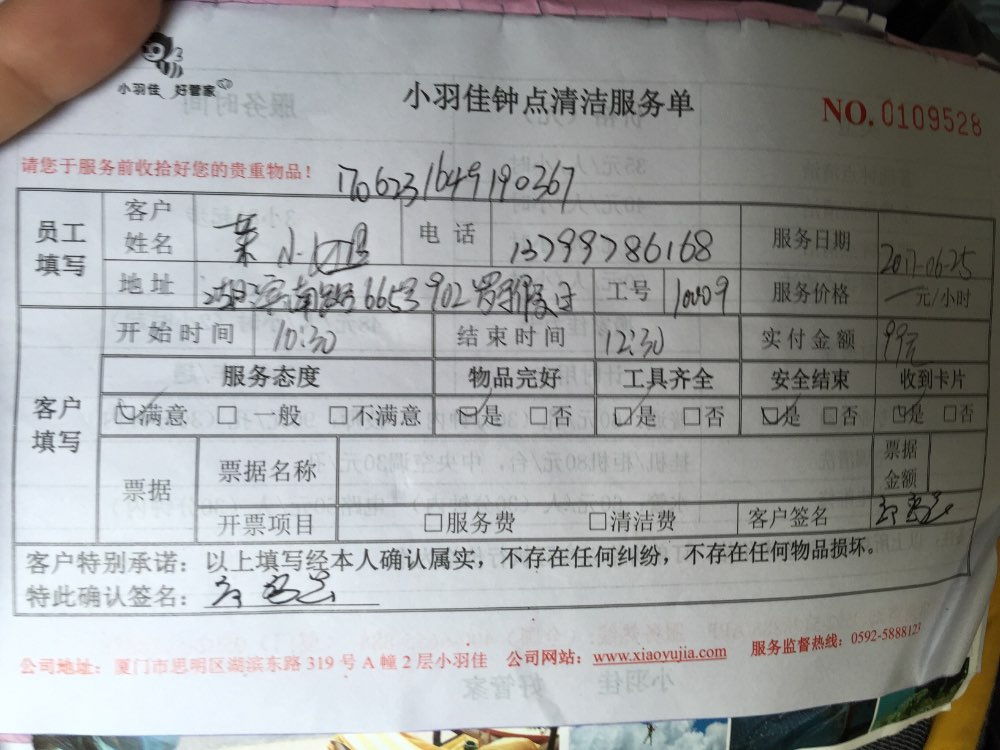 小羽佳 好管家
小羽佳钟点清洁服务单
NO. 0109528
请您于服务前收拾好您的贵重物品！
1706231649190367
员工填写 客户姓名 叶小姐 电话 13799786168 服务日期 2017-06-25
地址 湖滨南路665号902 工号 10009 服务价格 元/小时
开始时间 10:30 结束时间 12:30 实付金额 99元
客户填写 服务态度 物品完好 工具齐全 安全结束 收到卡片
☑满意 □一般 □不满意 ☑是 □否 ☑是 □否 ☑是 □否 ☑是 □否
票据 票据名称 票据金额
开票项目 □服务费 □清洁费 客户签名
客户特别承诺：以上填写经本人确认属实，不存在任何纠纷，不存在任何物品损坏。
特此确认签名：
公司地址：厦门市思明区湖滨东路 319 号 A 幢 2 层小羽佳 公司网站：www.xiaoyujia.com 服务监督热线：0592-5888123